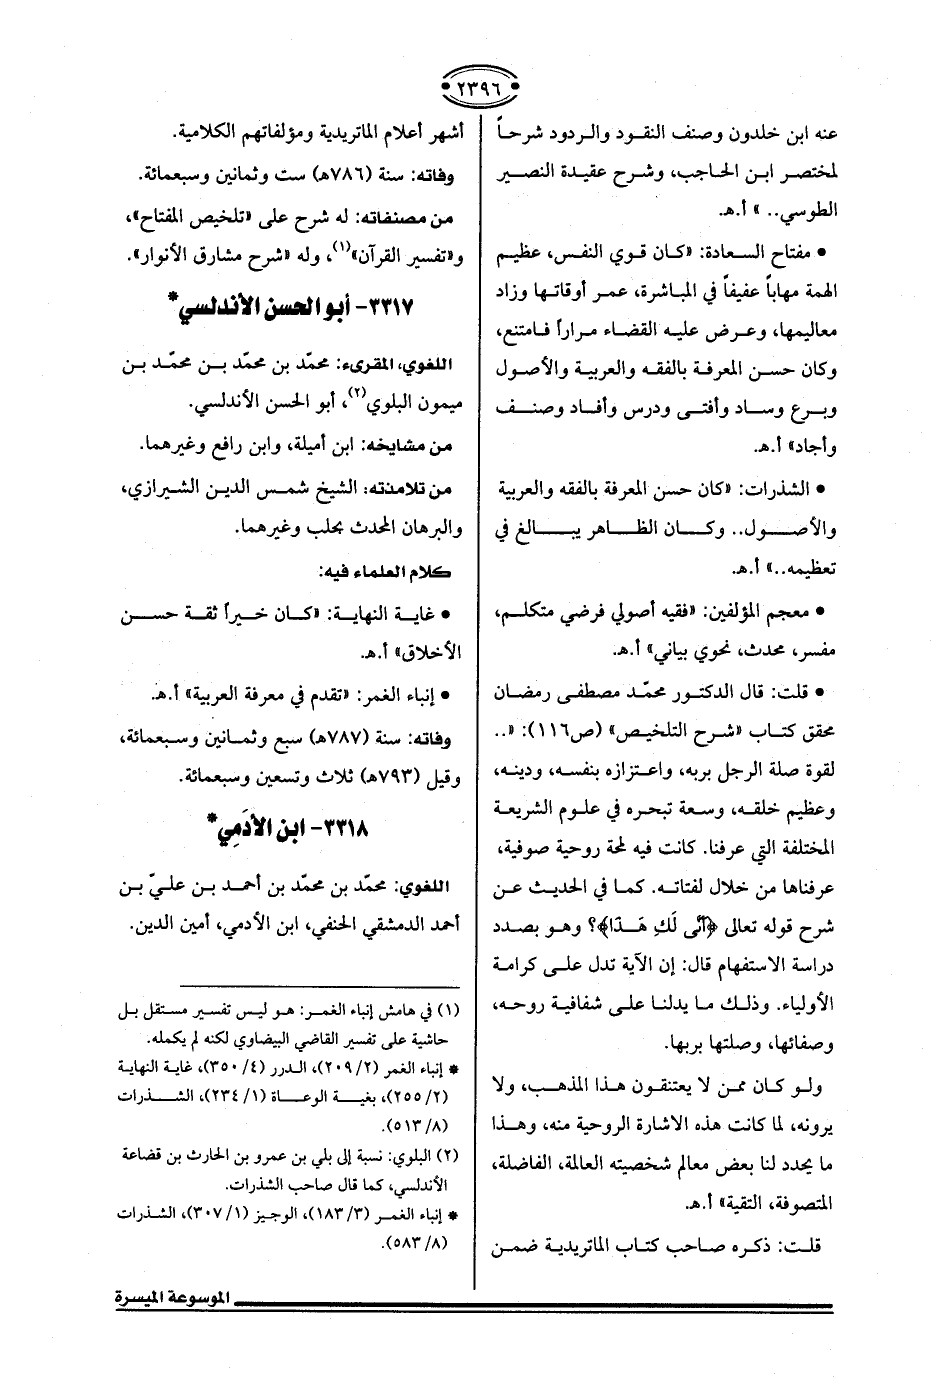 ٢٣٩٦
عنه ابن خلدون وصنف النقود والردود شرحاً
لمختصر ابن الحاجب، وشرح عقيدة النصير
الطوسي.. » أ.هـ.
• مفتاح السعادة: «كان قوي النفس، عظيم
الهمة مهاباً عفيفاً في المباشرة، عمر أوقاتها وزاد
معاليمها، وعرض عليه القضاء مراراً فامتنع،
وكان حسن المعرفة بالفقه والعربية والأصول
وبرع وساد وأفتى ودرس وأفاد وصنف
وأجاد» أ.هـ.
• الشذرات: «كان حسن المعرفة بالفقه والعربية
والأصول.. وكان الظاهر يبالغ في
تعظيمه..» أ.هـ.
• معجم المؤلفين: «فقيه أصولي فرضي متكلم،
مفسر، محدث، نحوي بياني» أ.هـ.
• قلت: قال الدكتور محمّد مصطفى رمضان
محقق كتاب «شرح التلخيص» (ص١١٦): «..
لقوة صلة الرجل بربه، واعتزازه بنفسه، ودينه،
وعظيم خلقه، وسعة تبحره في علوم الشريعة
المختلفة التي عرفنا. كانت فيه لمحة روحية صوفية،
عرفناها من خلال لفتاته. كما في الحديث عن
شرح قوله تعالى ﴿أَنَّى لَكِ هَذَا﴾؟ وهو بصدد
دراسة الاستفهام قال: إن الآية تدل على كرامة
الأولياء. وذلك ما يدلنا على شفافية روحه،
وصفائها، وصلتها بربها.
ولو كان ممن لا يعتنقون هذا المذهب، ولا
يرونه، لما كانت هذه الاشارة الروحية منه، وهذا
ما يحدد لنا بعض معالم شخصيته العالمة، الفاضلة،
المتصوفة، التقية» أ.هـ.
قلت: ذكره صاحب كتاب الماتريدية ضمن
أشهر أعلام الماتريدية ومؤلفاتهم الكلامية.
وفاته: سنة (٧٨٦هـ) ست وثمانين وسبعمائة.
من مصنفاته: له شرح على «تلخيص المفتاح»،
و«تفسير القرآن»(١)، وله «شرح مشارق الأنوار».
٣٣١٧- أبو الحسن الأندلسي*
اللغوي، المقرىء: محمّد بن محمّد بن محمّد بن
ميمون البلوي(٢)، أبو الحسن الأندلسي.
من مشايخه: ابن أميلة، وابن رافع وغيرهما.
من تلامذته: الشيخ شمس الدين الشيرازي،
والبرهان المحدث بحلب وغيرهما.
كلام العلماء فيه:
• غاية النهاية: «كان خيراً ثقة حسن
الأخلاق» أ.هـ.
• إنباء الغمر: «تقدم في معرفة العربية» أ.هـ.
وفاته: سنة (٧٨٧هـ) سبع وثمانين وسبعمائة،
وقيل (٧٩٣هـ) ثلاث وتسعين وسبعمائة.
٣٣١٨- ابن الأَدَمِي*
اللغوي: محمّد بن محمّد بن أحمد بن عليّ بن
أحمد الدمشقي الحنفي، ابن الأدمي، أمين الدين.
(١) في هامش إنباء الغمر: هو ليس تفسير مستقل بل
حاشية على تفسير القاضي البيضاوي لكنه لم يكمله.
* إنباء الغمر (٢/ ٢٠٩)، الدرر (٤/ ٣٥٠)، غاية النهاية
(٢/ ٢٥٥)، بغية الوعاة (١/ ٢٣٤)، الشذرات
(٨/ ٥١٣).
(٢) البلوي: نسبة إلى بلي بن عمرو بن الحارث بن قضاعة
الأندلسي، كما قال صاحب الشذرات.
* إنباء الغمر (٣/ ١٨٣)، الوجيز (١/ ٣٠٧)، الشذرات
(٨/ ٥٨٣).
الموسوعة الميسرة